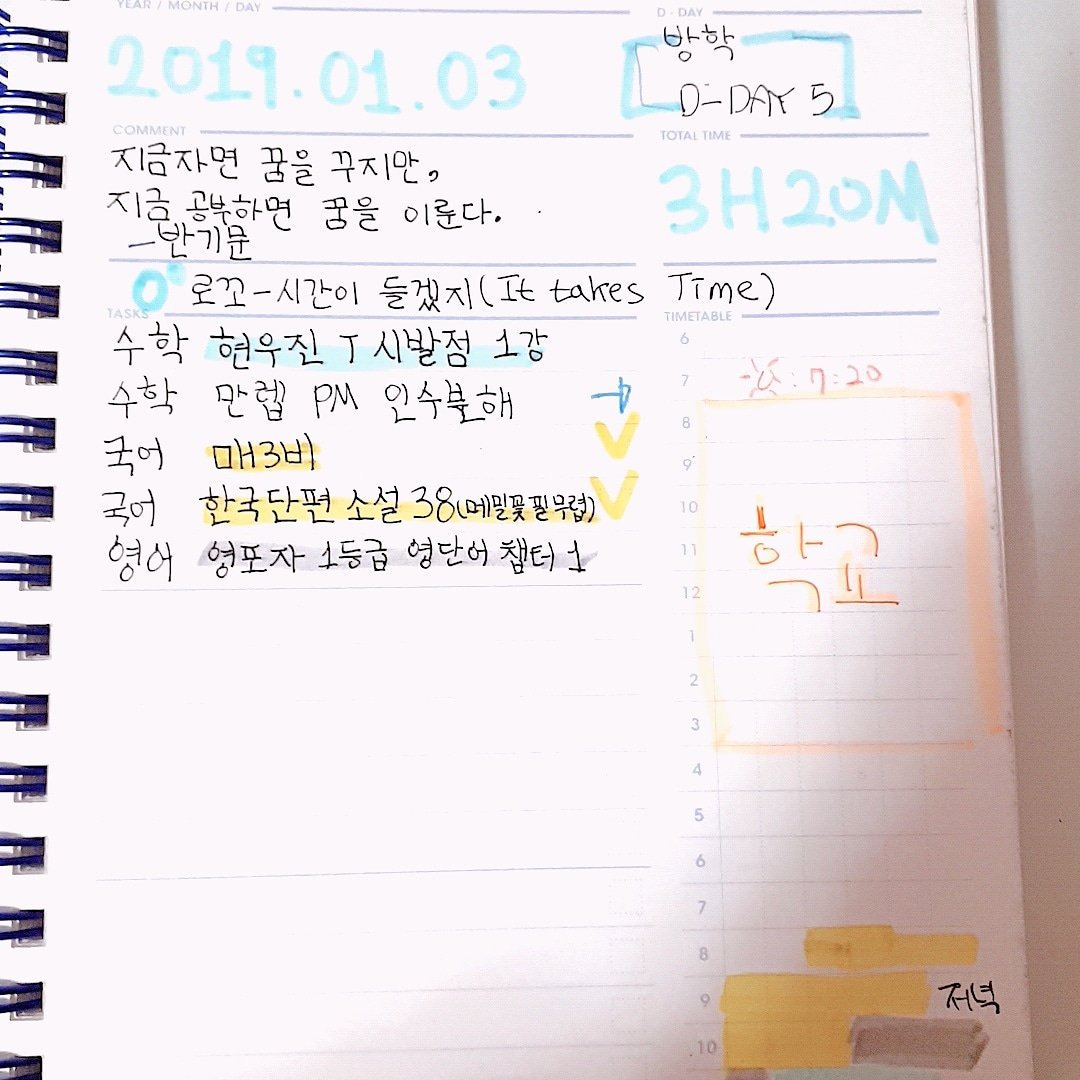 YEAR / MONTH / DAY
D - DAY
2019.01.03
방학
D-DAY 5
COMMENT
TOTAL TIME
지금자면 꿈을 꾸지만,
지금 공부하면 꿈을 이룬다.
-반기문
3H20M
로꼬-시간이 들겠지(It takes Time)
TASKS
TIMETABLE
수학 현우진 T 시발점 1강
수학 만렙 PM 인수분해 →
국어 매3비 V
국어 한국단편 소설 38(메밀꽃필무렵) V
영어 영포자 1등급 영단어 챕터 1
6
7 : 7:20
8
9
10
11
12
학교
1
2
3
4
5
6
7
8
9 저녁
10